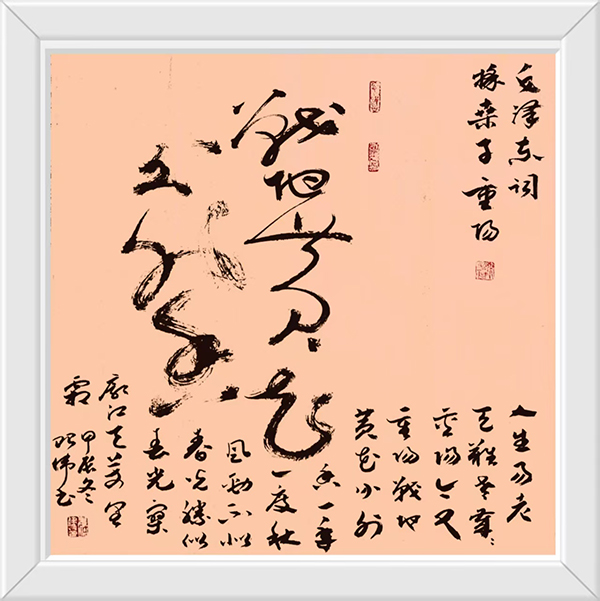 毛泽东词
採桑子重阳
戰地黄花
分外香
人生易老
天難老歲々
重阳今又
重阳戰地
黄花分外
香一年
一度秋
風勁不似
春光勝似
春光寥
廓江天万里
霜 甲辰冬